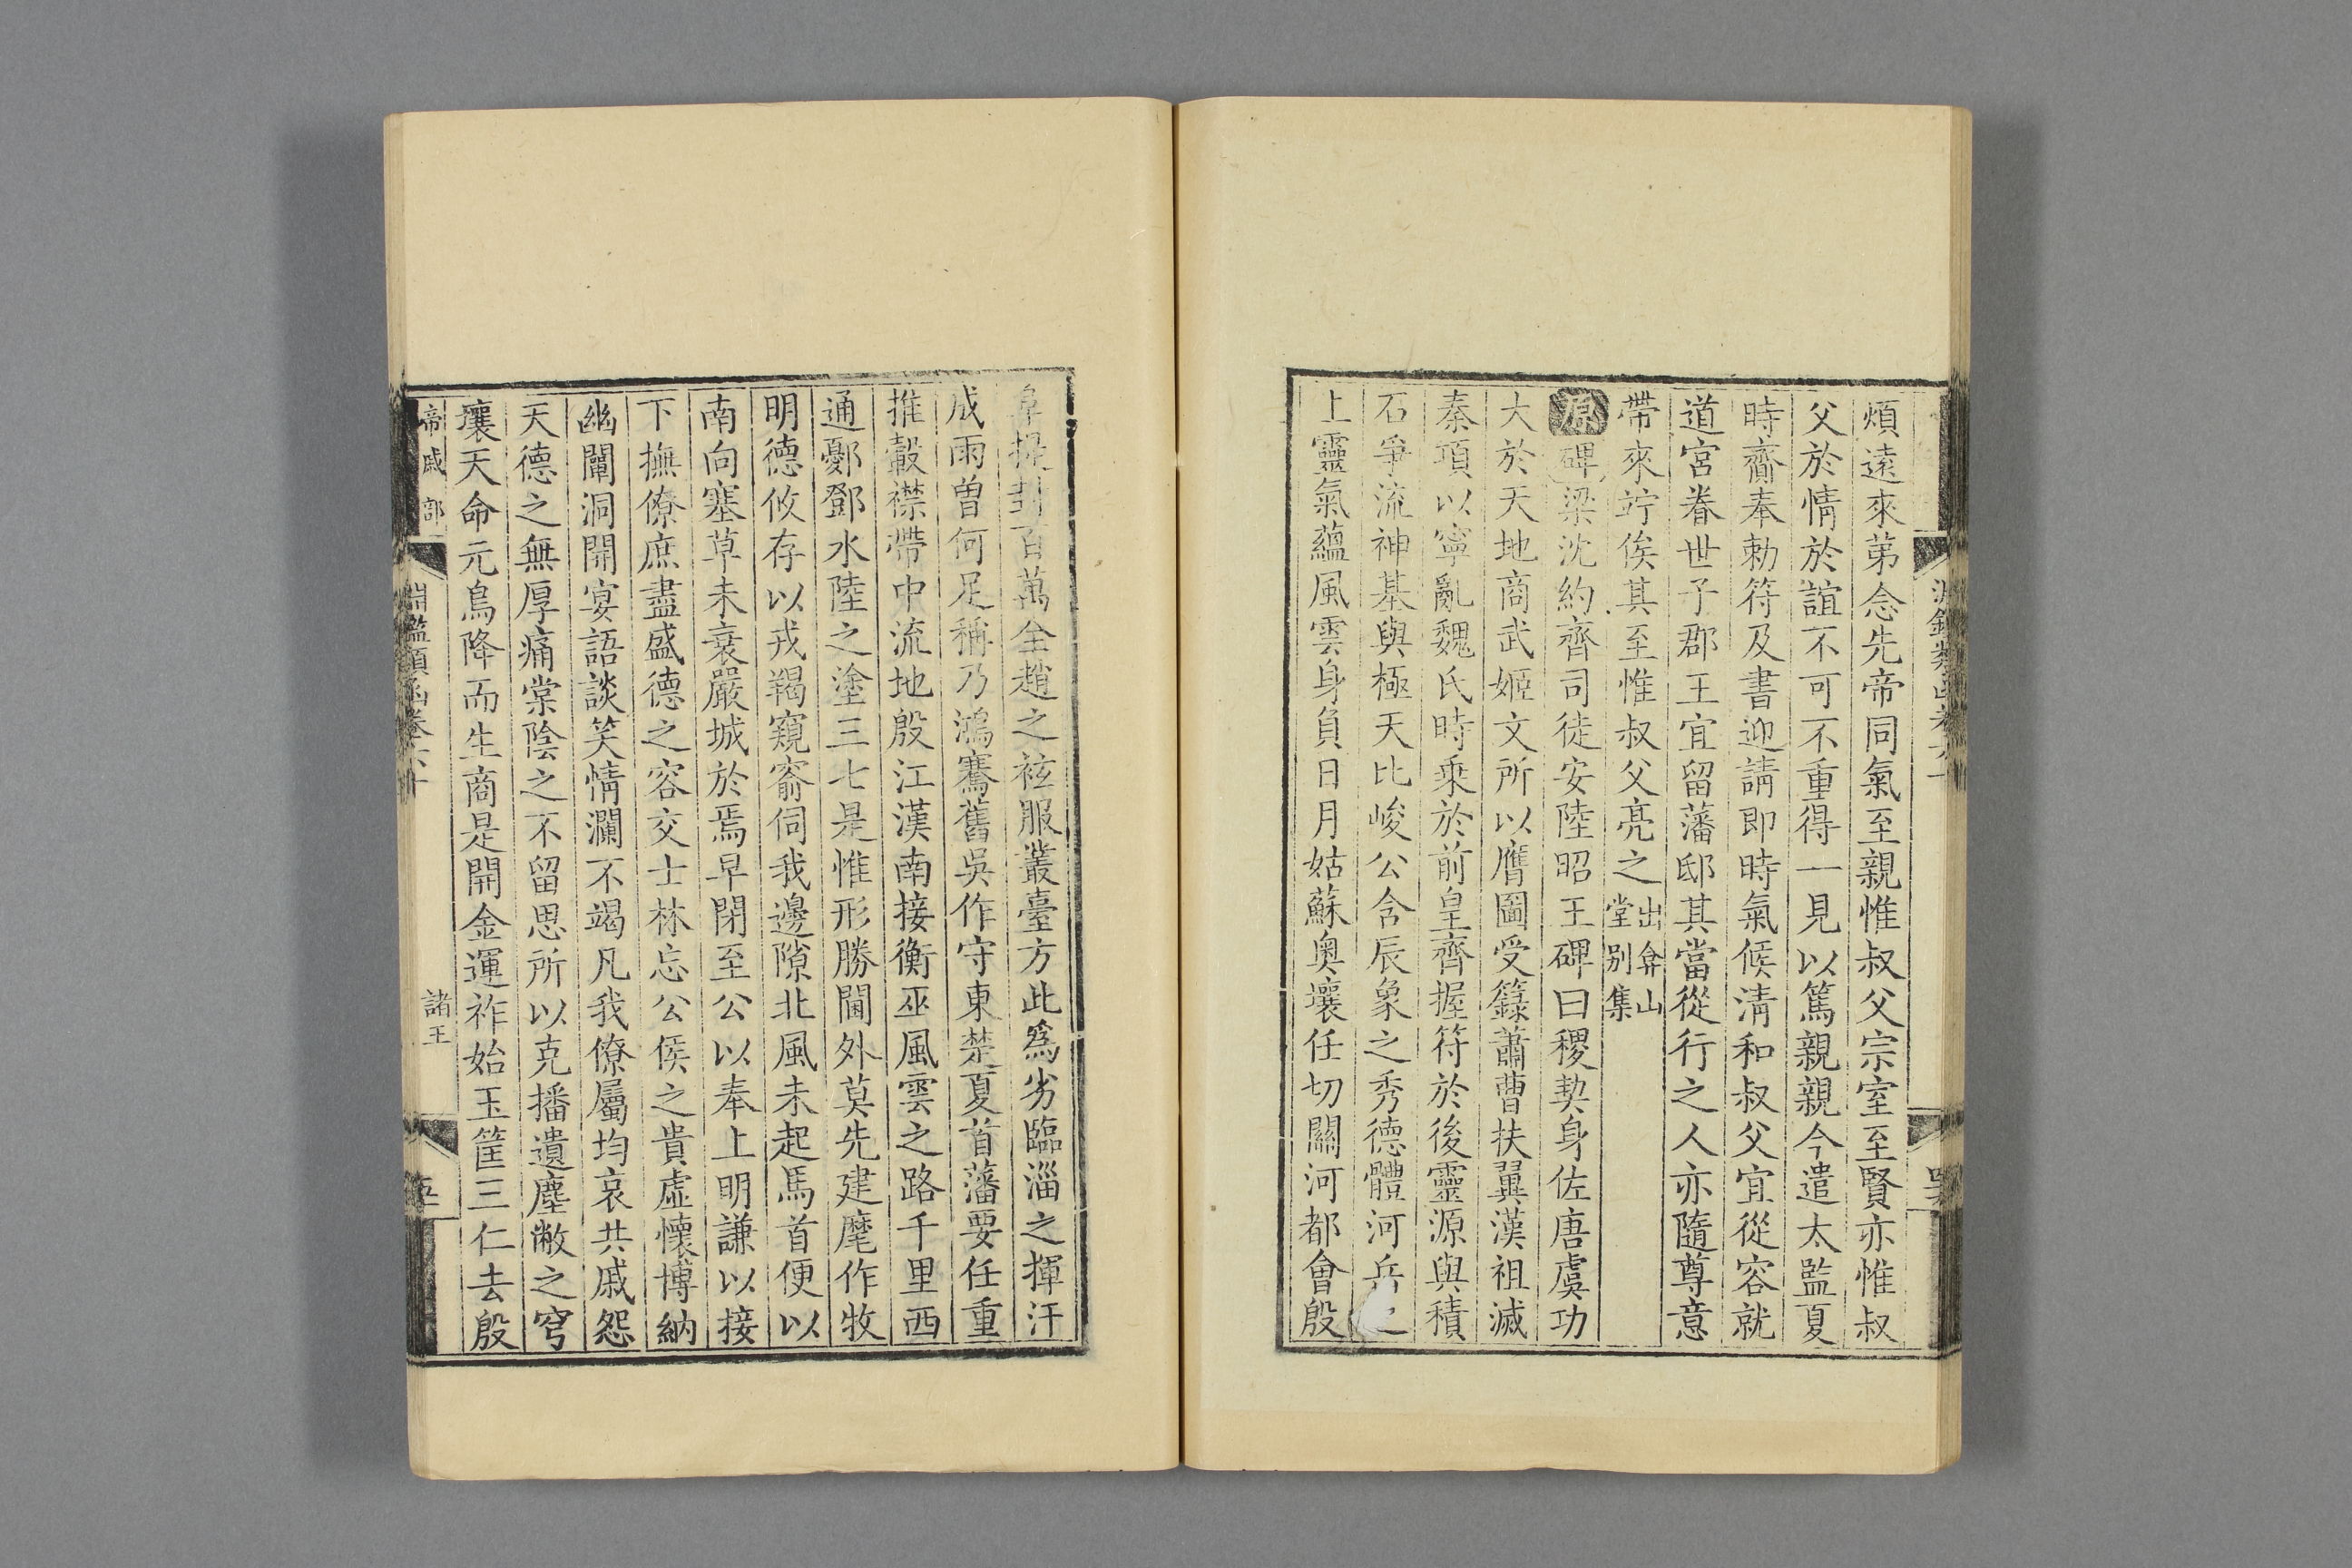 煩遠來第念先帝同氣至親惟叔父宗室至賢亦惟叔
父於情於誼不可不重得一見以篤親親今遣太監夏
時齎奉勅符及書迎請即時氣候清和叔父宜從容就
道宮眷世子郡王宜留藩邸其當從行之人亦隨尊意
帶來竚俟其至惟叔父亮之出弇山堂別集
原碑梁沈約齊司徒安陸昭王碑曰稷契身佐唐虞功
大於天地商武姬文所以膺圖受籙蕭曹扶翼漢祖滅
秦項以寧亂魏氏時乘於前皇齊握符於後靈源與積
石爭流神基與極天比峻公含辰象之秀德體河岳之
上靈氣蘊風雲身負日月姑蘇奧壤任切關河都會殷
阜提封百萬全趙之袨服叢臺方此爲劣臨淄之揮汗
成雨曾何足稱乃鴻騫舊吳作守東楚夏首藩要任重
推轂襟帶中流地殷江漢南接衡巫風雲之路千里西
通鄾鄧水陸之塗三七是惟形勝閫外莫先建麾作牧
明德攸存以戎羯窺窬伺我邊隙北風未起馬首便以
南向塞草未衰嚴城於焉早閉至公以奉上明謙以接
下撫僚庶盡盛德之容交士林忘公侯之貴虛懷博納
幽闡洞開宴語談笑情瀾不竭凡我僚屬均哀共戚怨
天德之無厚痛棠陰之不留思所以克播遺塵敝之穹
壤天命元鳥降而生商是開金運祚始玉筐三仁去殷
帝戚部 淵鑑類函卷六十 諸王